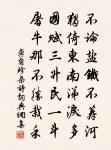 不論鹽鐵不籌河
獨倚東南涕淚多
國賦三升民一斗
屠牛那不勝栽禾